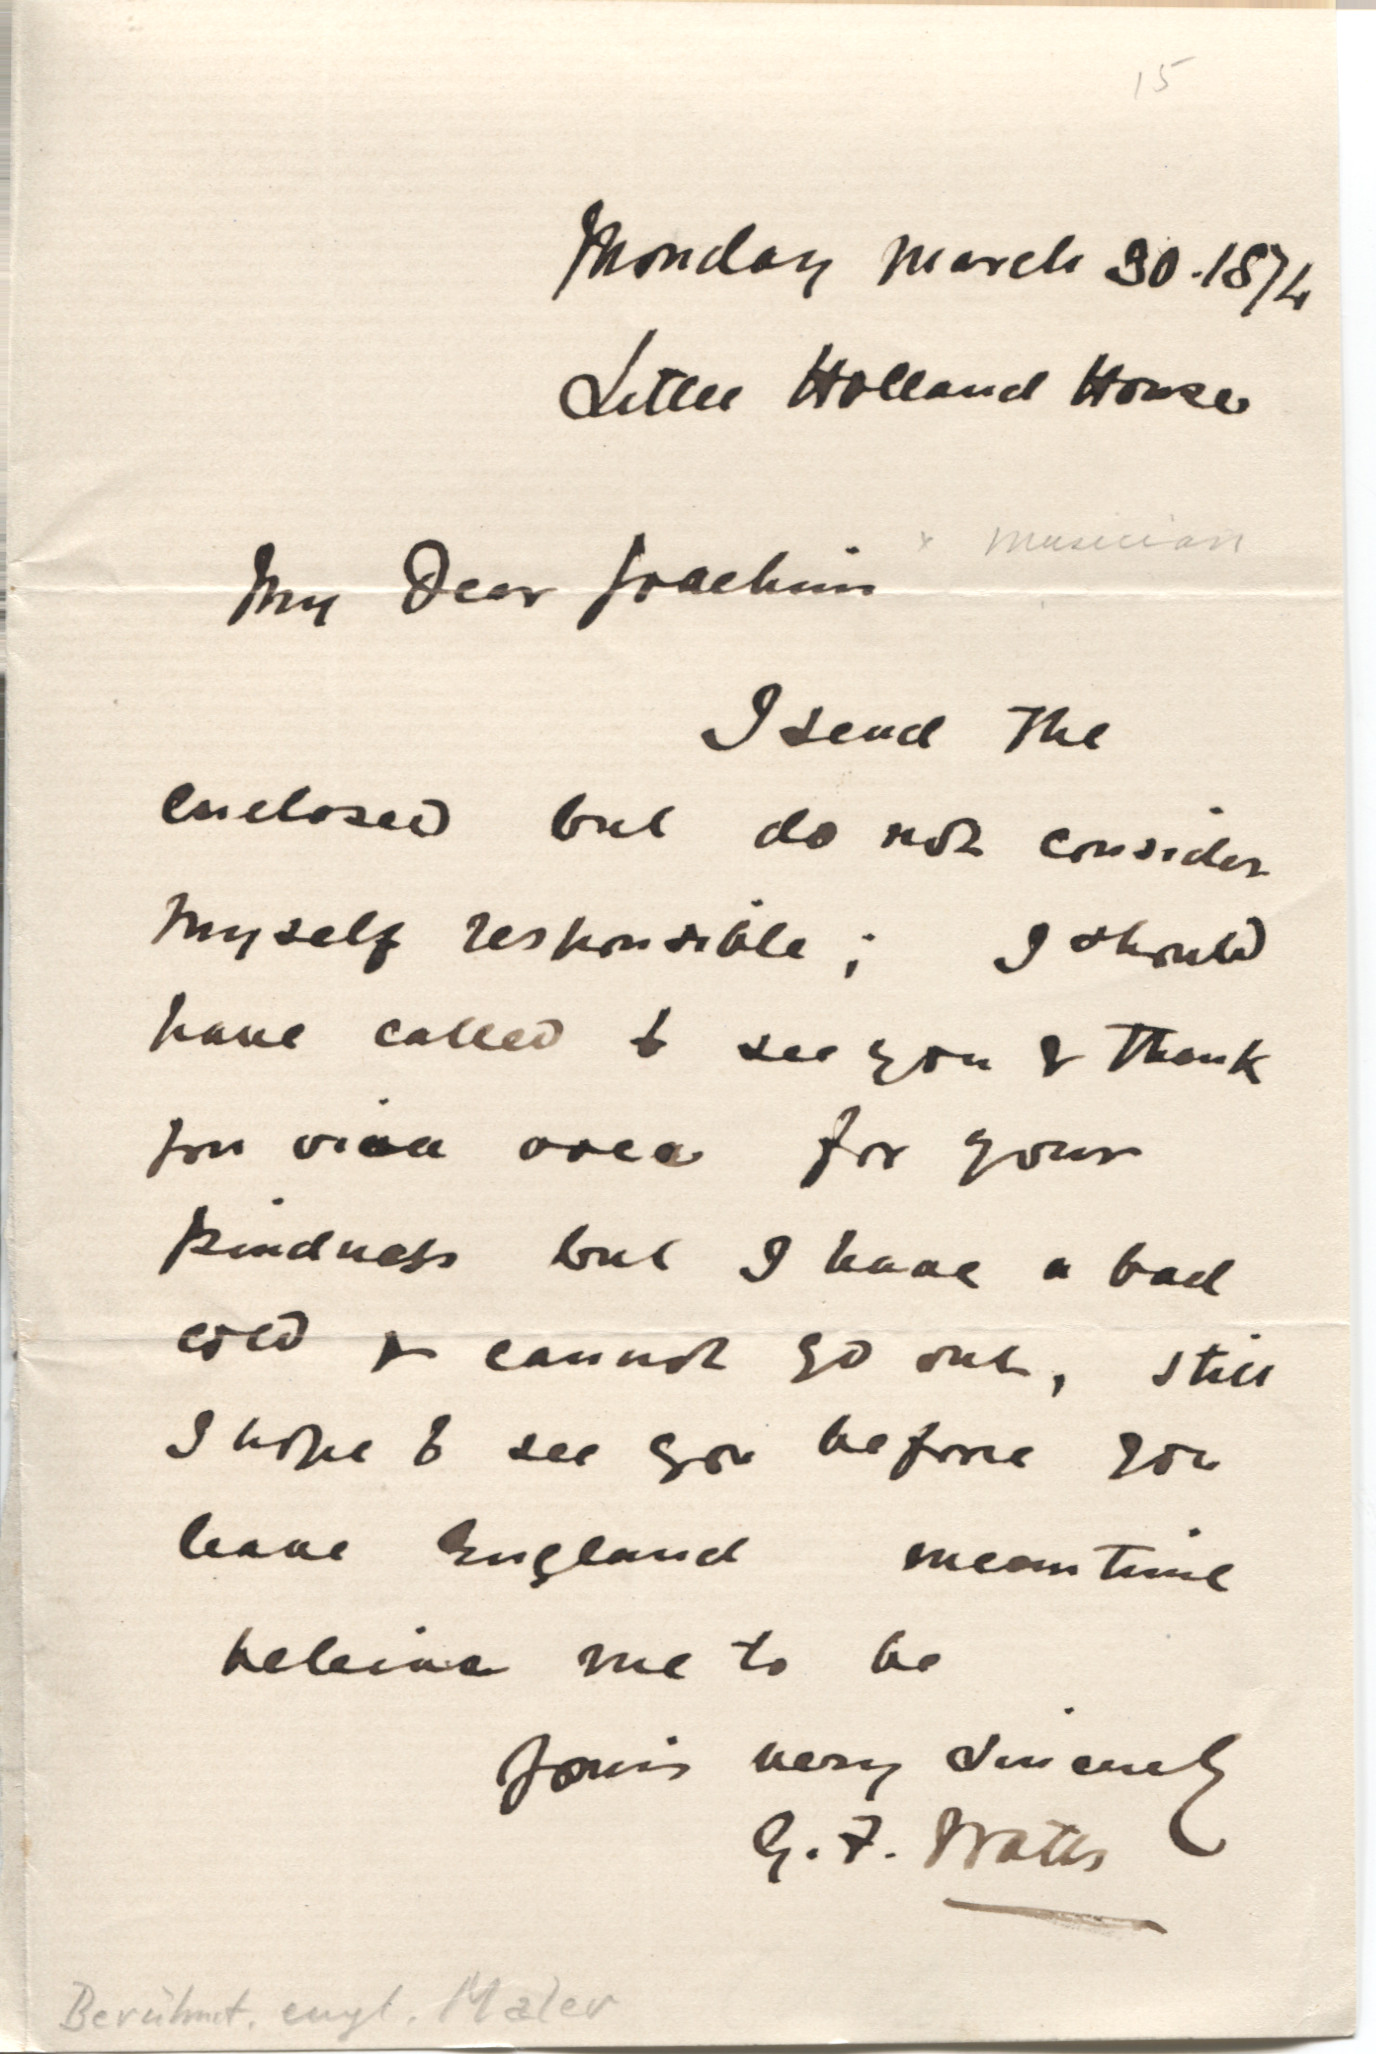 15
Monday March 30. 1874
Little Holland House
My Dear Joachim × musician
I send The
enclosed but do not consider
myself responsible ; I should
have called to see you & Thank
you viva voce for your
kindness but I have a bad
cold & cannot go out, still
I hope to see you before you
leave England meantime
beleive me to be
Yours very sincerely
G. F. Watts
Berühmt. engl. Maler